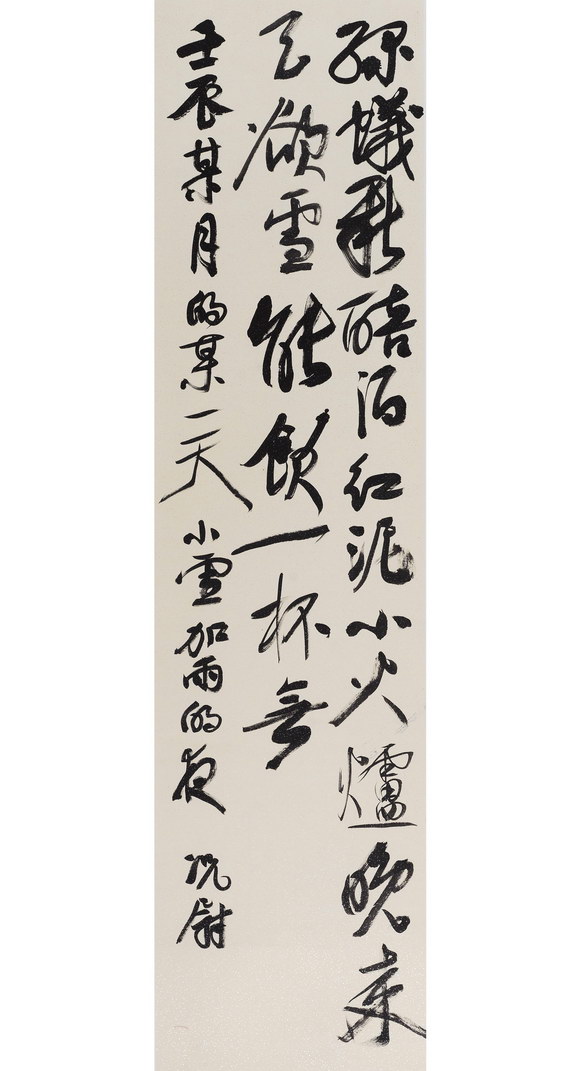 綠蟻新醅酒红泥小火爐晚来
天欲雪能飲一杯無
壬辰某月的某一天 小雪加雨的夜 尉